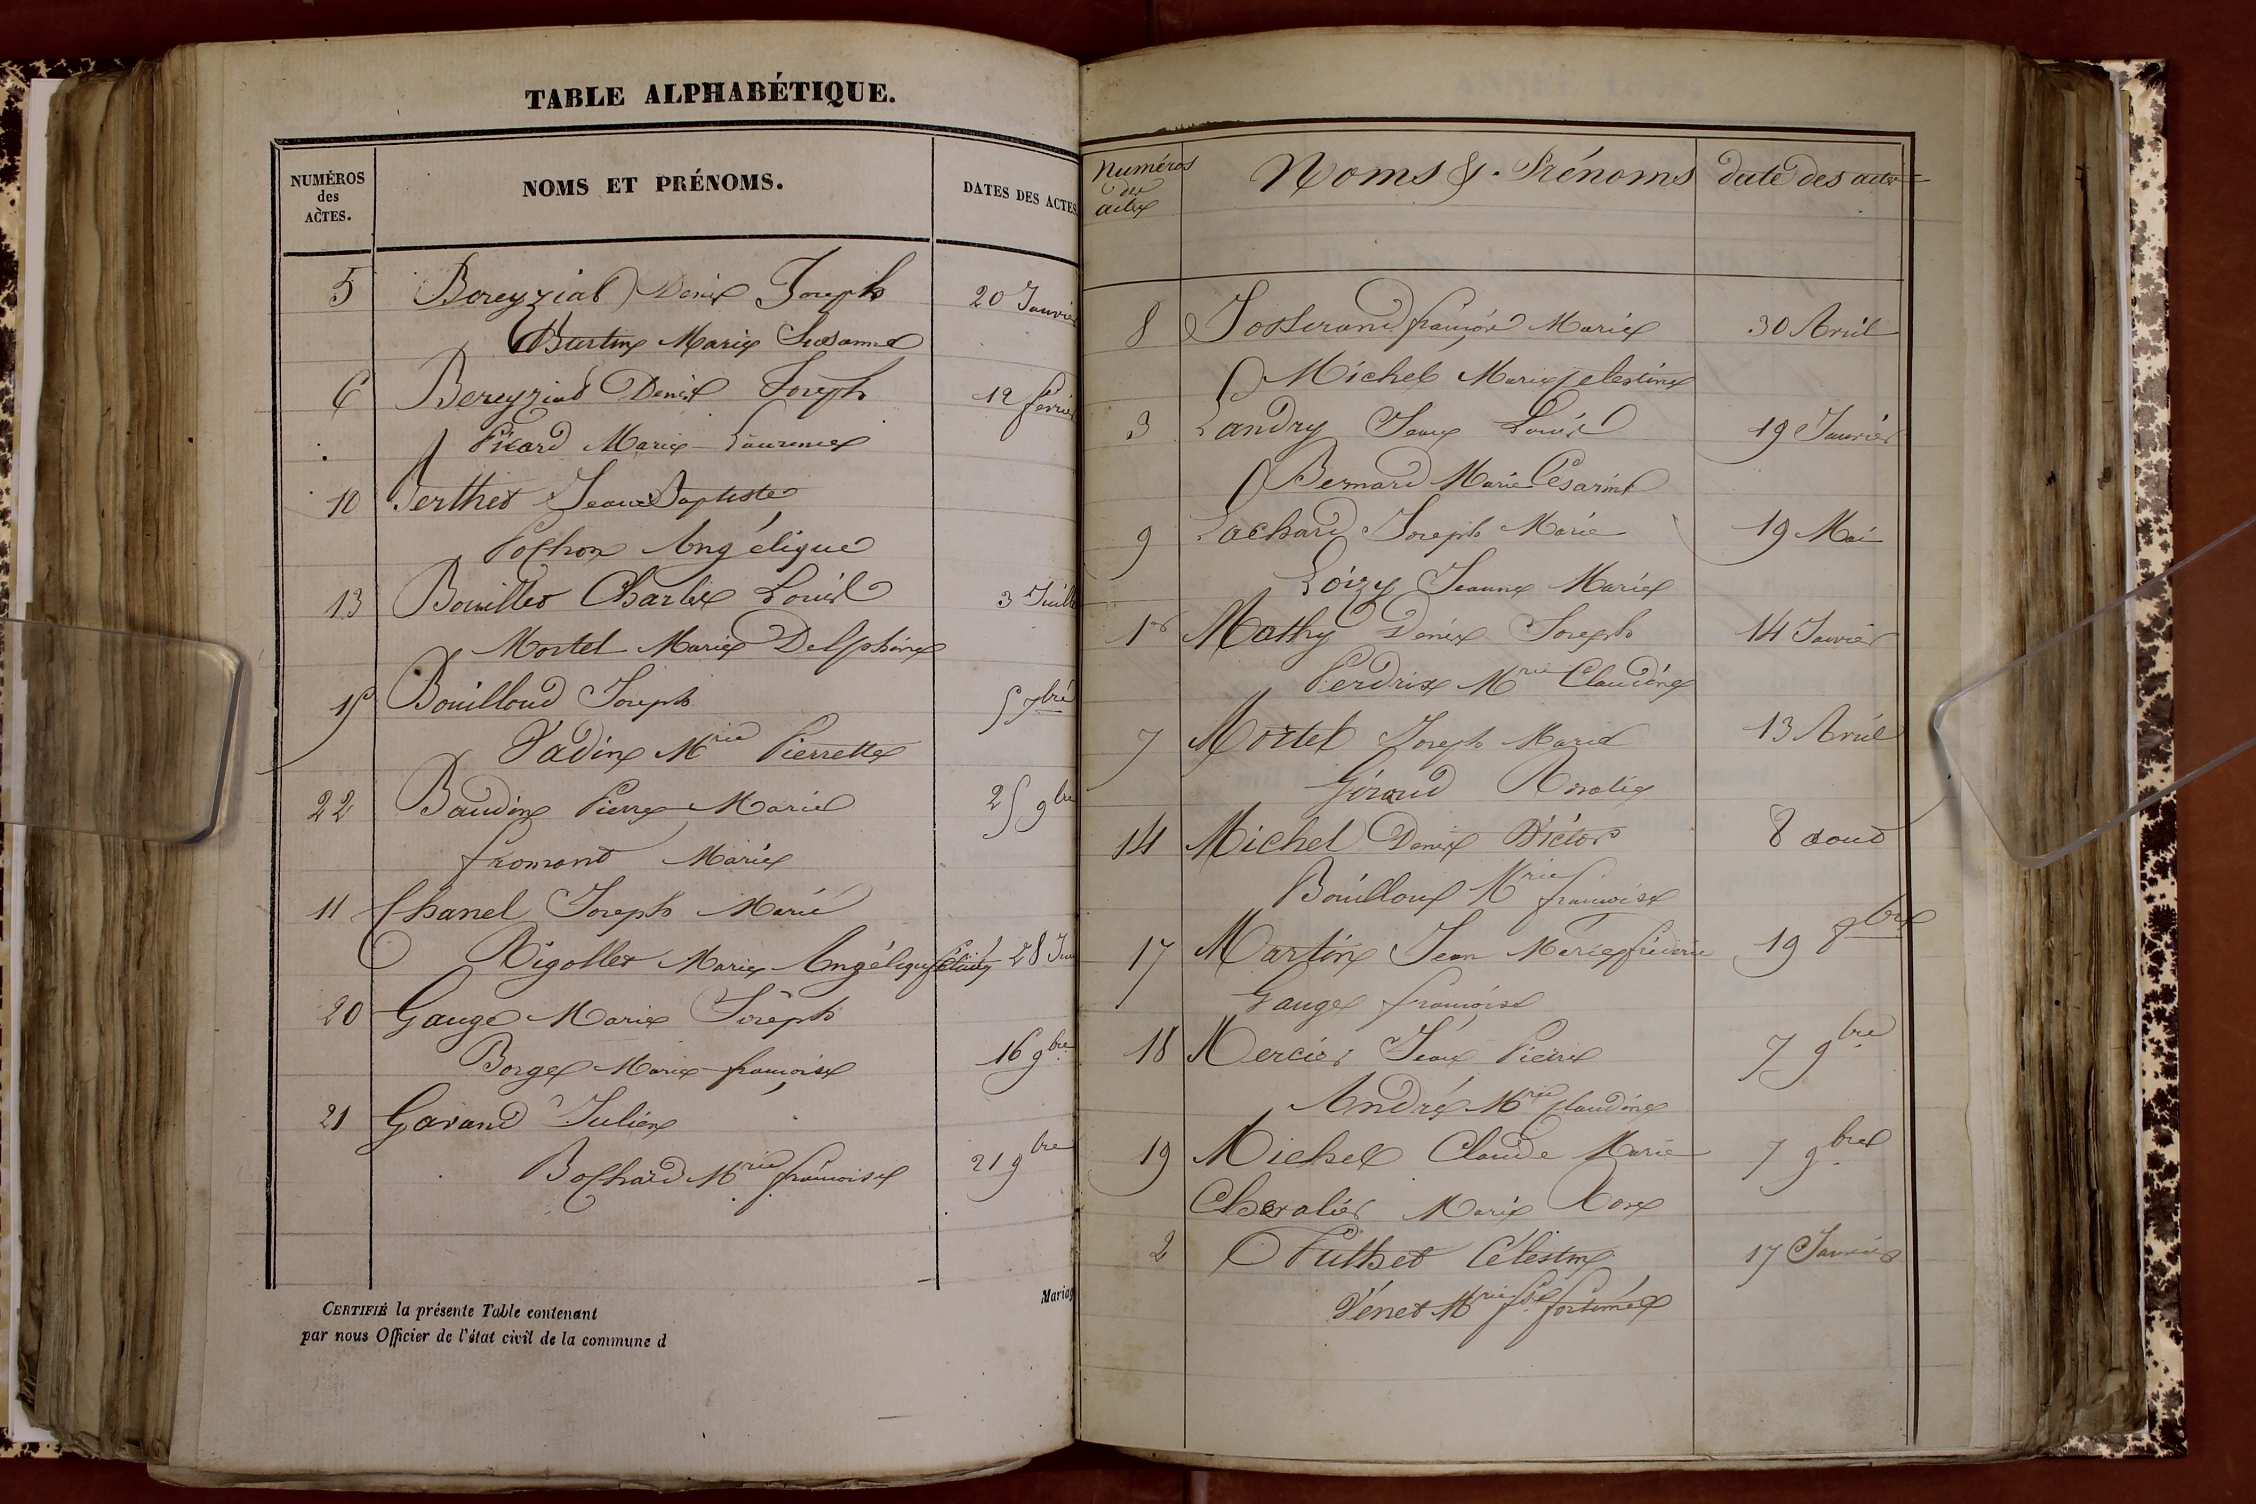 TABLE ALPHABÉTIQUE.
NUMÉROS des ACTES.
NOMS ET PRÉNOMS.
DATES DES ACTES
5 Bereyziat Denis Joseph 20 Janvier
Burtin Marie Susanne
6 Bereyziat Denis Joseph 12 février
Picard Marie Laurence
10 Berthet Jean Baptiste
Pochon Angélique
13 Bouillet Charles Louis 3 Juillet
Mortel Marie Delphine
15 Bouilloud Joseph 5 7bre
Vadin Mrie Pierrette
22 Baudin Pierre Marie 25 9bre
fromont Marie
11 Chanel Joseph Marie
Rigollet Marie Angélique 28 Jui
20 Gauge Marie Joseph
Borge Marie françoise 16 9bre
21 Gavand Julien
Bochard Mrie françoise 21 9bre
Mariag
CERTIFIÉ la présente Table contenant
par nous Officier de l'état civil de la commune d
Numéros des actes
Noms & Prénoms
date des actes
8 Josserand françois Marie 30 Avril
Michel Marie Celestine
3 Landry Jean Louis 19 Janvier
Bernard Marie Césarine
9 Lochard Joseph Marie 19 Mai
Loizy Jeanne Marie
1er Mathy Denis Joseph 14 Janvier
Perdrix Mrie Claudine
7 Mortel Joseph Marie 13 Avril
Giraud Rosalie
14 Michel Denis Victor 8 aout
Bouilloux Mrie françoise
17 Martin Jean Marie frédéric 19 8bre
Gauge françoise
18 Mercier Jean Pierre 7 9bre
André Mrie Claudine
19 Michel Claude Marie 7 9bre
Chevalier Marie Rose
2 Puthet Célestin 17 Janvier
Vénet Mrie fse fortunée